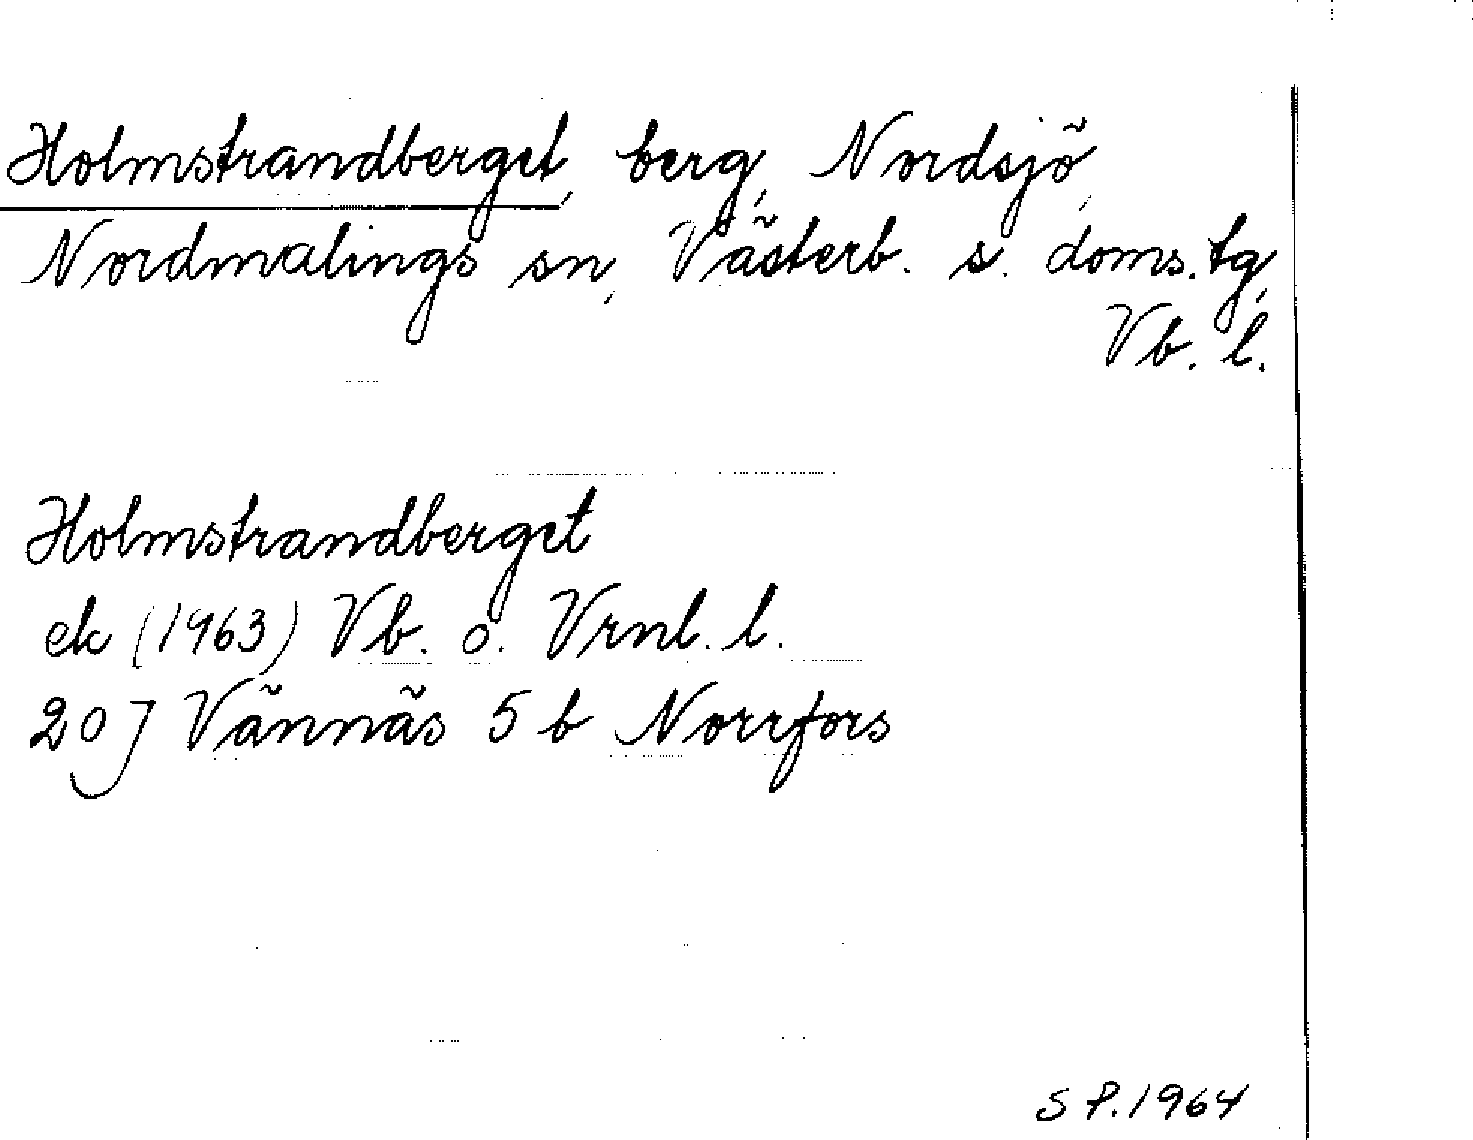 Holmstrandberget, berg, Nordsjö,
Nordmalings sn, Västerb. s. doms. tg,
Vb. l.
Holmstrandberget
ek (1963) Vb. o. Vrnl. l.
20 J Vännäs 5 b Norrfors
S P. 1964